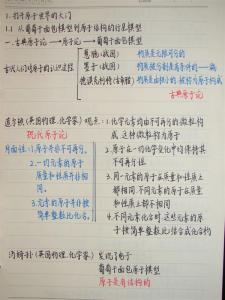 1. 打开原子世界的大门
1.1 从葡萄干面包模型到原子结构的行星模型
一.古典原子论 → 原子论 → 葡萄干面包模型
惠施(战国) 物质是无限可分的
古代人们对原子的认识过程 墨子(战国) 物质被分割是有条件的
德谟克利特(古希腊) 物质是由极小的 被称为原子构成
古典原子论
道尔顿(英国物理.化学家)观点:1.化学元素均由不可再分的微粒构成.这种微粒称为原子
现代原子论
2.原子在一切化学变化中均保持其不可再分性
局限性:1.原子并非不可再分。
2.一切元素的原子质量和性质并非相同。
3.元素的原子并非按简单整数比化合。
3.同一元素的原子在质量和性质上都相同.不同元素的原子在质量和性质上都不相同
4.不同元素化合时.这些元素的原子按简单整数比结合成化合物
汤姆孙(英国物理.化学家) 发现了电子
葡萄干面包原子模型
原子是有结构的